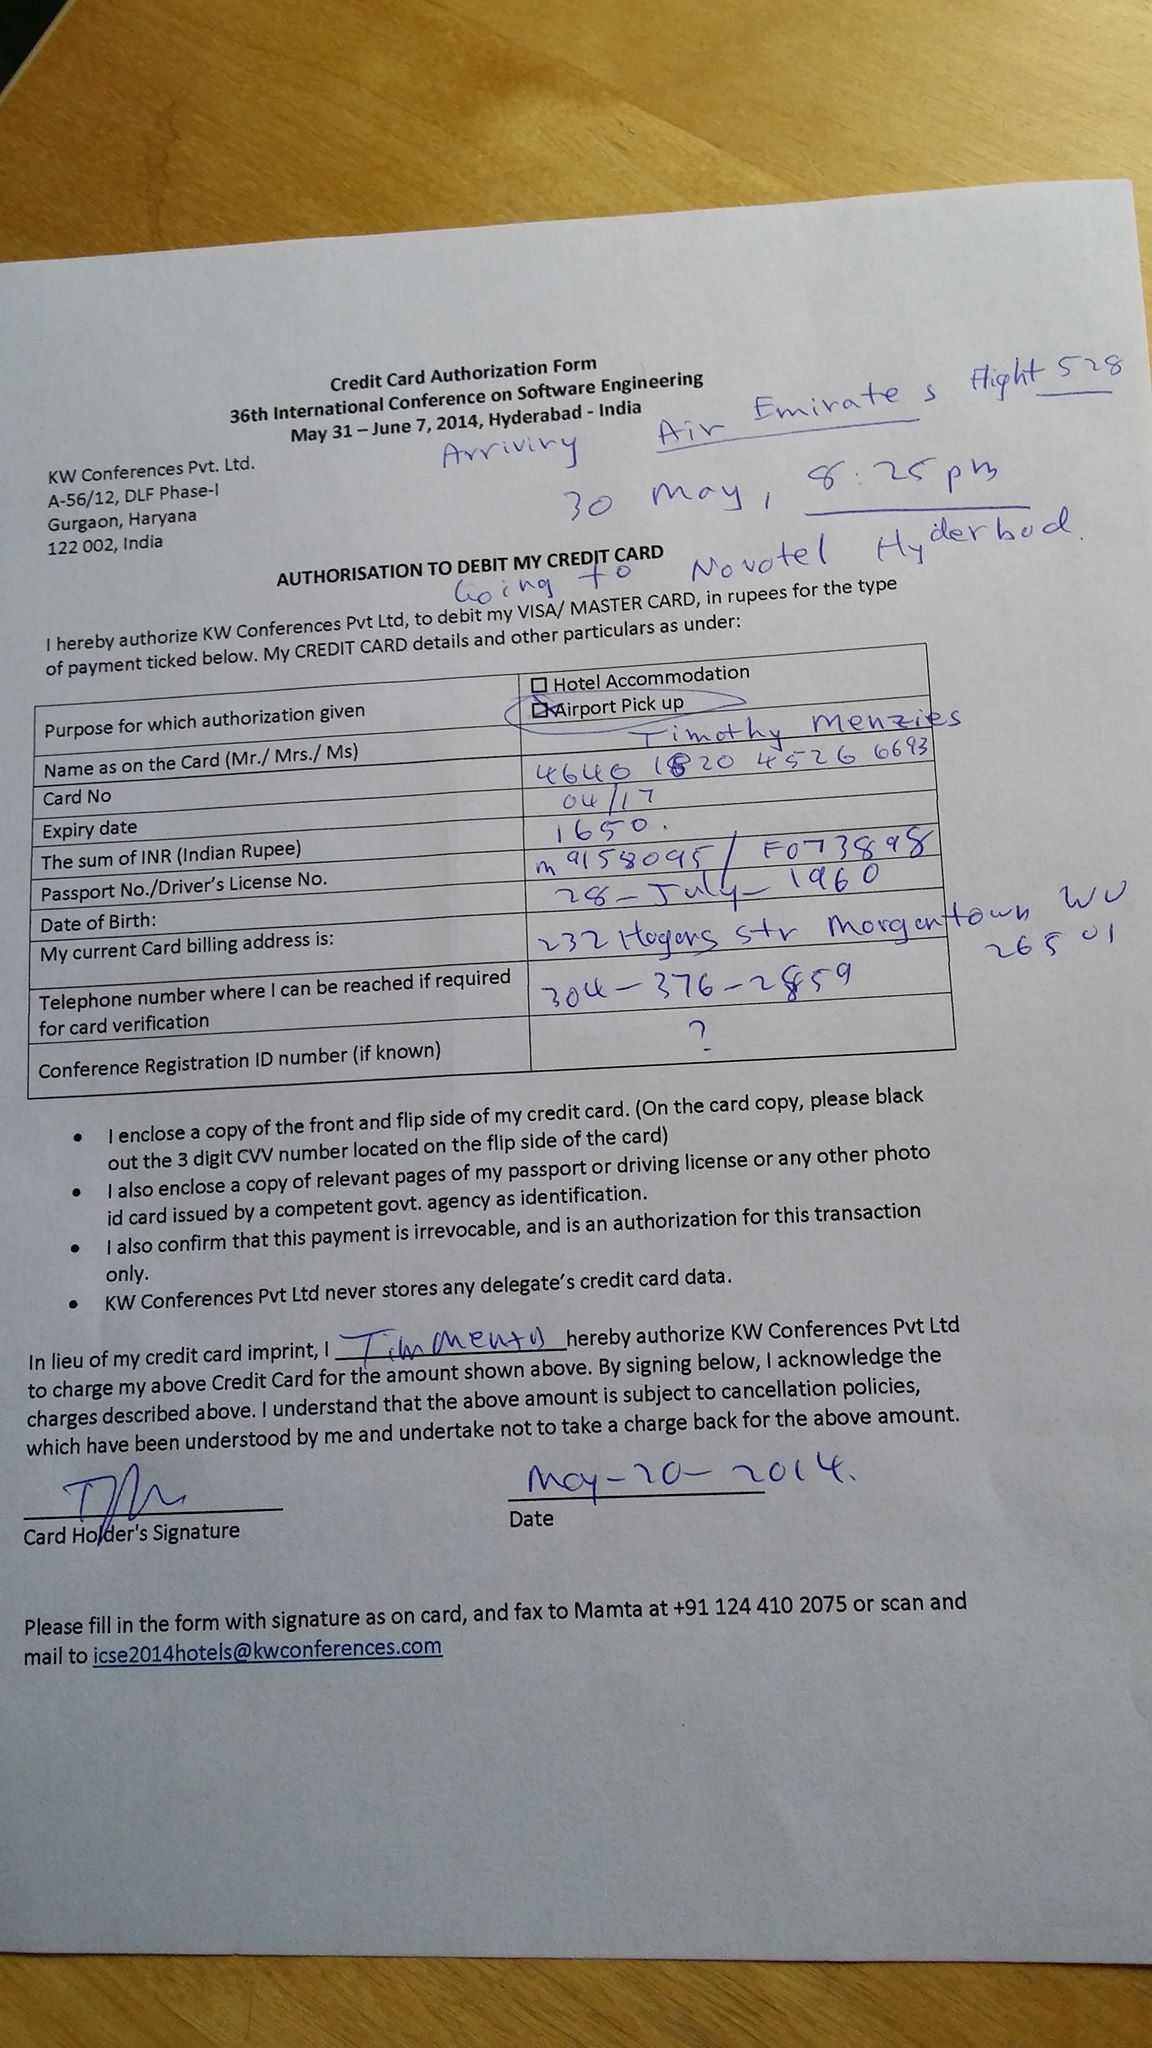 Credit Card Authorization Form
36th International Conference on Software Engineering
May 31 – June 7, 2014, Hyderabad - India
Air Emirates flight 528
30 May, 8:25 pm
KW Conferences Pvt. Ltd.
A-56/12, DLF Phase-I
Gurgaon, Haryana
122 002, India
AUTHORISATION TO DEBIT MY CREDIT CARD
Going to Novotel Hyderbad.
I hereby authorize KW Conferences Pvt Ltd, to debit my VISA/ MASTER CARD, in rupees for the type
of payment ticked below. My CREDIT CARD details and other particulars as under:
Purpose for which authorization given
Hotel Accommodation
Airport Pick up
Name as on the Card (Mr./ Mrs./ Ms) Timothy Menzies
Card No 4640 1820 4526 6693
Expiry date 04/17
The sum of INR (Indian Rupee) 1650.
Passport No./Driver's License No. m9158095/ F073898
Date of Birth: 28-July-1960
My current Card billing address is: 232 str Morgantown WV
26501
Telephone number where I can be reached if required 304-376-2859
for card verification
Conference Registration ID number (if known) ?
• I enclose a copy of the front and flip side of my credit card. (On the card copy, please black
out the 3 digit CVV number located on the flip side of the card)
• I also enclose a copy of relevant pages of my passport or driving license or any other photo
id card issued by a competent govt. agency as identification.
• I also confirm that this payment is irrevocable, and is an authorization for this transaction
only.
• KW Conferences Pvt Ltd never stores any delegate's credit card data.
In lieu of my credit card imprint, I Tim hereby authorize KW Conferences Pvt Ltd
to charge my above Credit Card for the amount shown above. By signing below, I acknowledge the
charges described above. I understand that the above amount is subject to cancellation policies,
which have been understood by me and undertake not to take a charge back for the above amount.
May-20-2014.
Card Holder's Signature
Date
Please fill in the form with signature as on card, and fax to Mamta at +91 124 410 2075 or scan and
mail to icse2014hotels@kwconferences.com